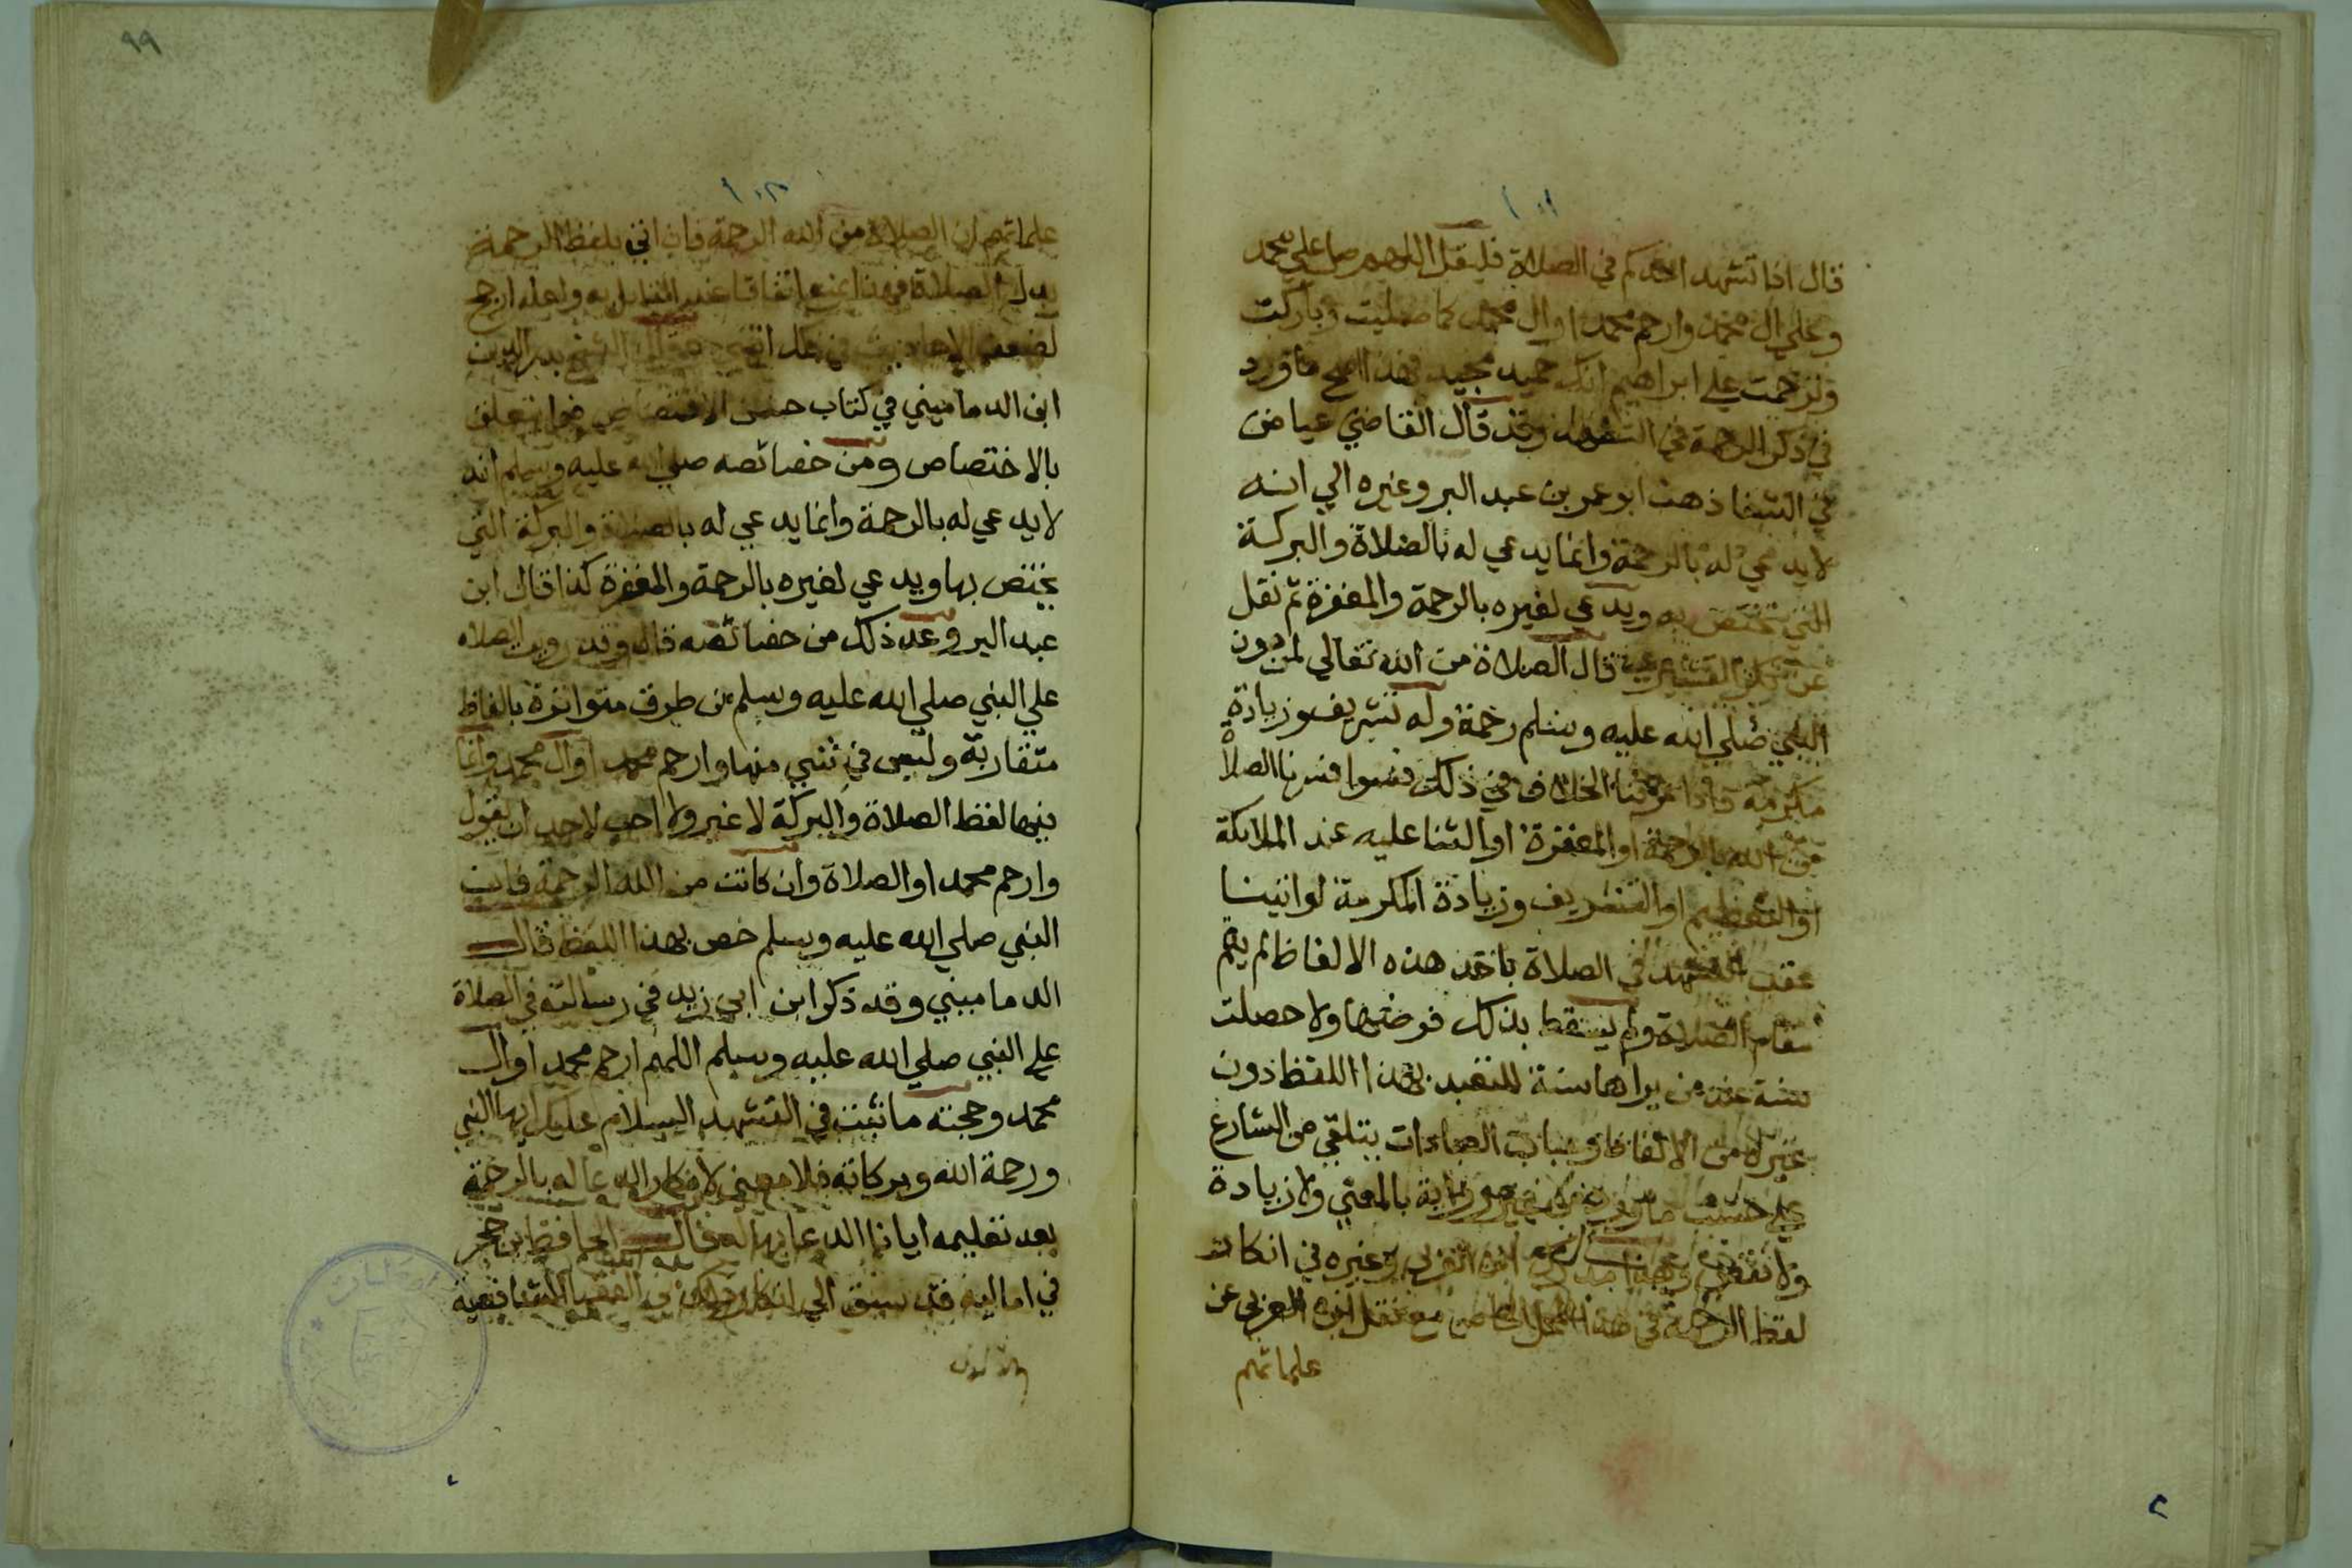 ١٠١
قال اذا تشهد احدكم في الصلاة فليقل اللهم صل علي محمد
وعلي ال محمد وارحم محمدا وال محمد كما صليت وباركت
وترحمت علي ابراهيم انك حميد مجيد فهذا اصح ما ورد
في ذكر الرحمة في التشهد وقد قال القاضي عياض
في الشفا ذهب ابو عمر بن عبد البر وغيره الي انه
لا يدعي له بالرحمة وانما يدعي له بالصلاة والبركة
التي تختص به ويدعي لغيره بالرحمة والمغفرة ثم نقل
عن بكر القشيري قال الصلاة من الله تعالي لمن دون
النبي صلي الله عليه وسلم رحمة وله تشريف وزيادة
مكرمة فاذا عرفنا الخلاف في ذلك فسوا فسرنا الصلاة
من الله بالرحمة او المغفرة او الثنا عليه عند الملايكة
او التعظيم او التشريف وزيادة المكرمة لو اتينا
عقب التشهد في الصلاة باحد هذه الالفاظ لم يقم
مقام الصلاة ولم يسقط بذلك فرضها ولا حصلت
سنة عند من يراها سنة للتعبد بهذا اللفظ دون
غيره من الالفاظ وباب العبادات يتلقي من الشارع
علي حسب ما ورد من غير رواية بالمعني ولا زيادة
ولا نقص ابن العربي وغيره في انكار
لفظ الرحمة في هذا المحل الخاص مع نقل ابن العربي عن
علمائهم
٩٩
١٠٢
علمائهم ان الصلاة من الله الرحمة فان اتي بلفظ الرحمة
بدل الصلاة فهذا يمنع اتفاقا عند القايل به ولعله ارجح
لضعف الاحاديث في ذلك انتهي الشيخ بدر الدين
ابن الدماميني في كتاب حسن الاقتصاص فيما يتعلق
بالاختصاص ومن خصائصه صلي الله عليه وسلم انه
لا يدعي له بالرحمة وانما يدعي له بالصلاة والبركة التي
يختص بها ويدعي لغيره بالرحمة والمغفرة كذا قال ابن
عبد البر وعد ذلك من خصائصه قال وقد رويت الصلاه
علي النبي صلي الله عليه وسلم من طرق متواترة بالفاظ
متقاربة وليس في شي منها وارحم محمدا وال محمد وانما
فيها لفظ الصلاة والبركة لا غير ولا احب لاحد ان يقول
وارحم محمدا والصلاة وان كانت من الله الرحمة فان
النبي صلي الله عليه وسلم خص بهذا اللفظ قال
الدماميني وقد ذكر ابن ابي زيد في رسالته في الصلاة
علي النبي صلي الله عليه وسلم اللهم ارحم محمدا وال
محمد وحجته ما ثبت في التشهد السلام عليك ايها النبي
ورحمة الله وبركاته فلا معني لانكار الدعا له بالرحمة
بعد تعليمه ايانا الدعا بها له قال الحافظ بن حجر
في اماليه قد سبق الي انكار ذلك من الفقها الشافعية